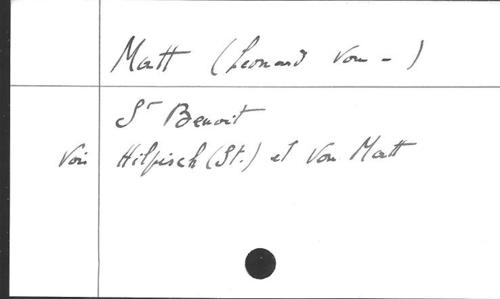 Matt (Leonard von -)
St Benoit
Voir Hilpisch (St.) et Von Matt